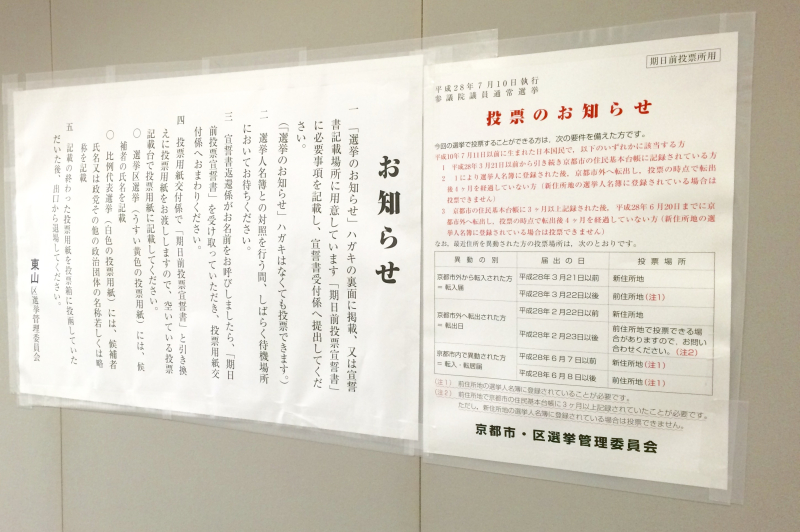 お知らせ
一 「選挙のお知らせ」ハガキの裏面に掲載、又は宣誓
書記載場所に用意しています「期日前投票宣誓書」
に必要事項を記載し、宣誓書受付係へ提出してくだ
さい。
(「選挙のお知らせ」ハガキはなくても投票できます。)
二 選挙人名簿との対照を行う間、しばらく待機場所
においてお待ちください。
三 宣誓書返還係がお名前をお呼びしましたら、「期日
前投票宣誓書」を受け取っていただき、投票用紙交
付係へおまわりください。
四 投票用紙交付係で「期日前投票宣誓書」と引き換
えに投票用紙をお渡ししますので、空いている投票
記載台で投票用紙に記載してください。
〇 選挙区選挙(うすい黄色の投票用紙)には、候
補者の氏名を記載
〇 比例代表選挙(白色の投票用紙)には、候補者
氏名又は政党その他の政治団体の名称若しくは略
称を記載
五 記載の終わった投票用紙を投票箱に投函していた
だいた後、出口から退場してください。
東山区選挙管理委員会
期日前投票所用
平成28年7月10日執行
参議院議員通常選挙
投票のお知らせ
今回の選挙で投票することができる方は、次の要件を備えた方です。
平成10年7月11日以前に生まれた日本国民で、以下のいずれかに該当する方
1 平成28年3月21日以前から引き続き京都市の住民基本台帳に記録されている方
2 1により選挙人名簿に登録された後、京都市外へ転出し、投票の時点で転出
後4ヶ月を経過していない方(新住所地の選挙人名簿に登録されている場合は
投票できません)
3 京都市の住民基本台帳に3ヶ月以上記録された後、平成28年6月20日までに京
都市外へ転出し、投票の時点で転出後4ヶ月を経過していない方(新住所地の選
挙人名簿に登録されている場合は投票できません)
なお、最近住所を異動された方の投票場所は、次のとおりです。
異動の別 届出の日 投票場所
京都市外から転入された方
=転入届
平成28年3月21日以前 新住所地
平成28年3月22日以後 前住所地(注1)
京都市外へ転出された方
=転出日
平成28年2月22日以前 新住所地
平成28年2月23日以後 前住所地で投票できる場
合がありますので、お問い
合わせください。(注2)
京都市内で異動された方
=転入・転居届
平成28年6月7日以前 新住所地(注1)
平成28年6月8日以後 前住所地(注1)
(注1) 前住所地の選挙人名簿に登録されていることが必要です。
(注2) 前住所地で京都市の住民基本台帳に3ヶ月以上記録されていたことが必要です。
ただし、新住所地の選挙人名簿に登録されている場合は投票できません。
京都市・区選挙管理委員会